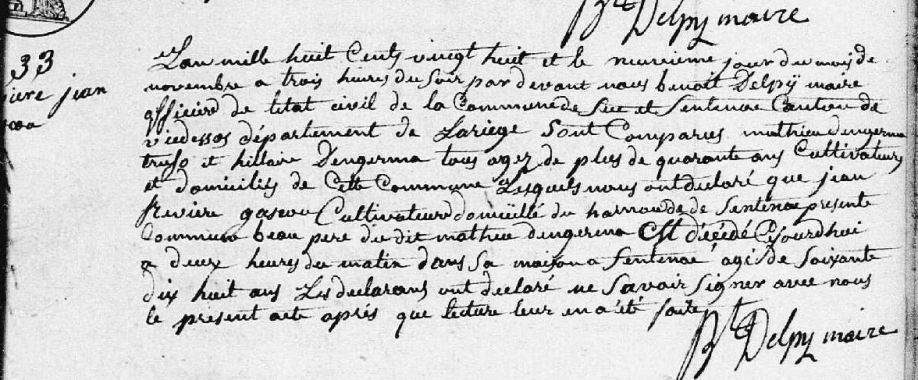 Bt Delpy maire
33
jean
Lan mille huit Cents vingt huit et le neuvieme jour du mois de
novembre a trois heures du soir par devant nous benoit Delpÿ maire
officier de létat civil de la Commune de Suc et Sentenac Canton de
vicdessos département de Lariège Sont Comparus mathieu dengerma
trufo et hillaire Dengerma tous agez de plus de quarante ans Cultivateurs
et domiciliés de Cette Commune Lesquels nous ont declaré que jean
gascou Cultivateur domicillé du hamau de de Sentenac presente
Commune beau pere du dit mathieu dengerma Est décédé Cejourdhui
a deux heures du matin dans Sa maison a Sentenac agé de Soixante
dix huit ans Les declarans ont declaré ne Savoir Signer avec nous
le present acte après que lecture leur en a été faite
Bt Delpy maire